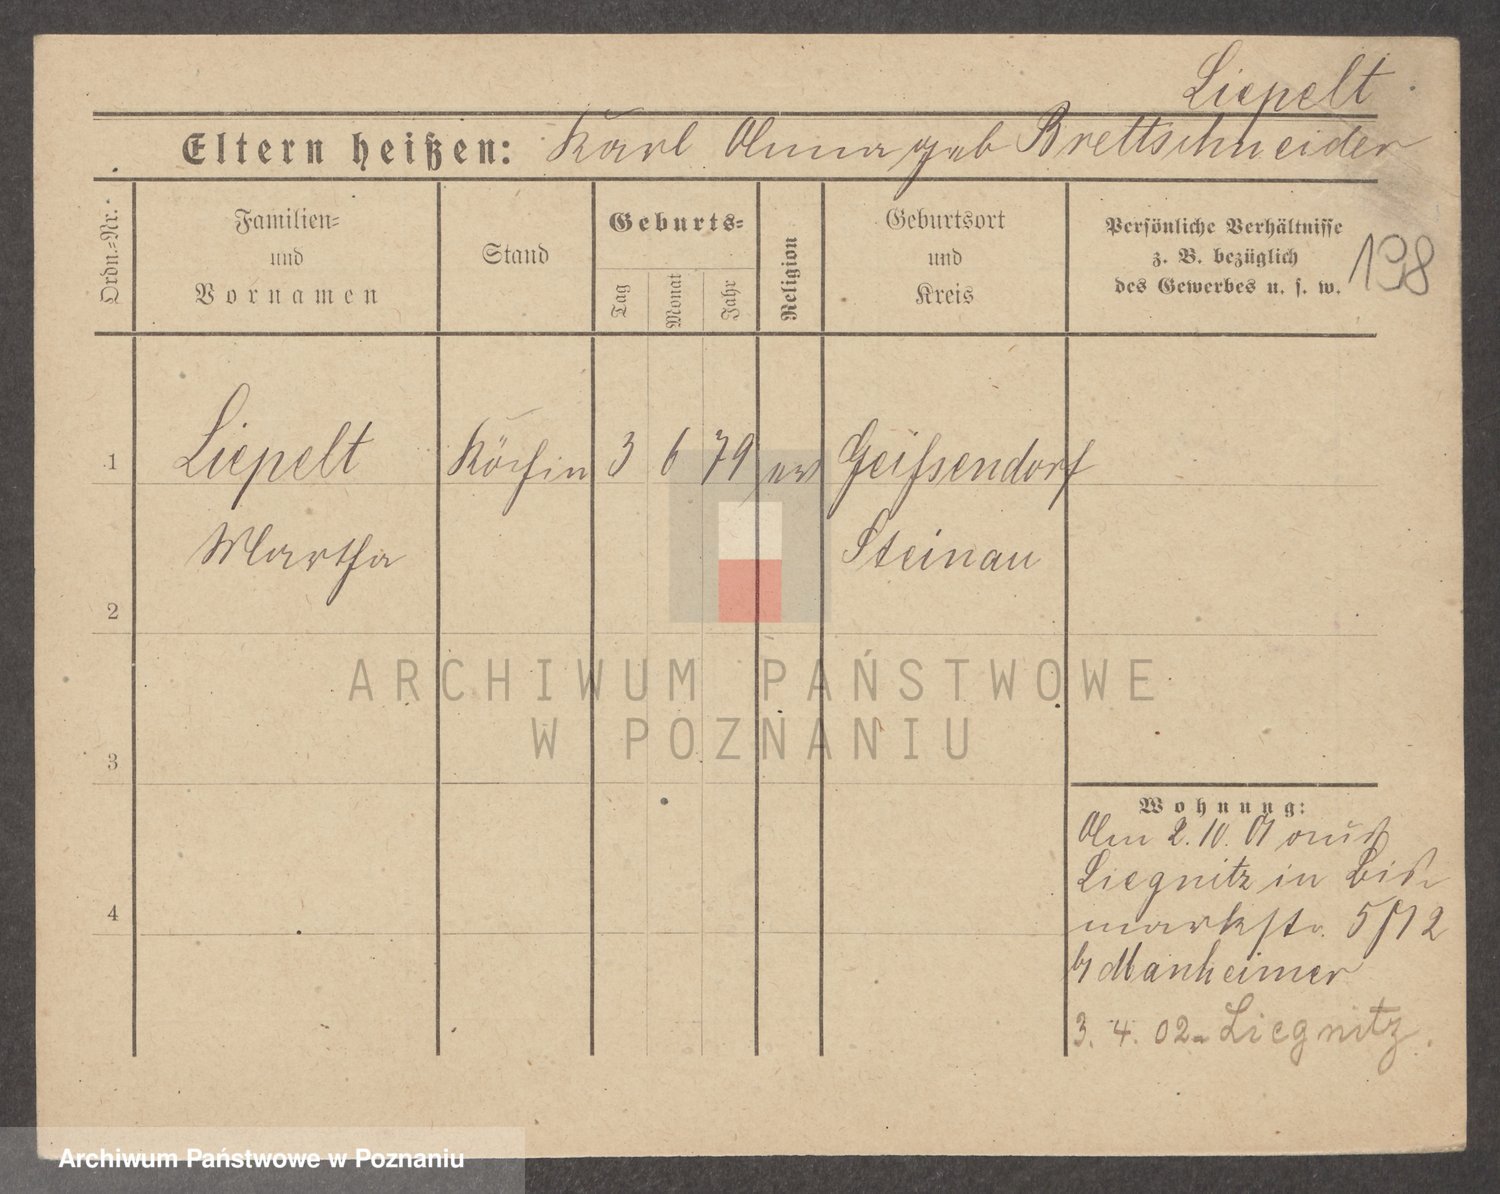 Liepelt
Eltern heißen: Karl Anna geb Brettschneider
198
Ordn.=Nr.
Familien=
und
Vornamen
Stand
Geburts=
Tag
Monat
Jahr
Religion
Geburtsort
und
Kreis
Persönliche Verhältnisse
z. B. bezüglich
des Gewerbes u. s. w.
1 Liepelt Köchin 3 6 79 ev Geißendorf
Martha Steinau
2
ARCHIWUM PAŃSTWOWE
W POZNANIU
3
Wohnung:
Am 2. 10. 01 aus
Liegnitz in Bis-
markstr. 5/12
b Manheimer
4
3. 4. 02 Liegnitz.
Archiwum Państwowe w Poznaniu